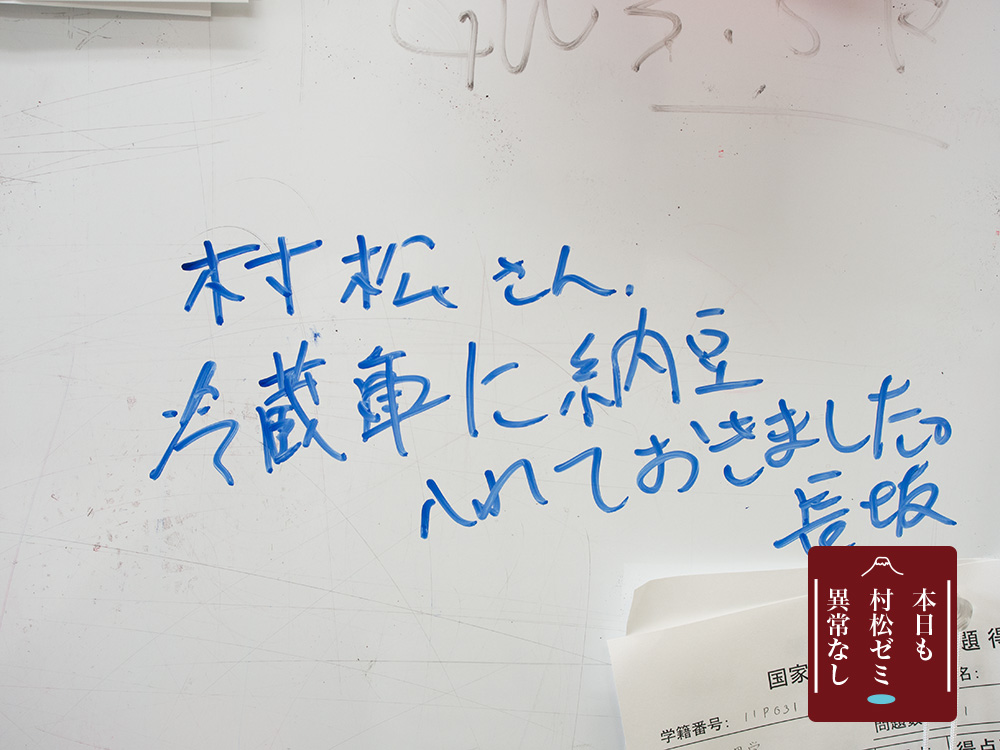 村松さん.
冷蔵庫に納豆
入れておきました。
長坂
本日も
村松ゼミ
異常なし
国家
題 得
学籍番号: 11P031
名:
問題数
得点